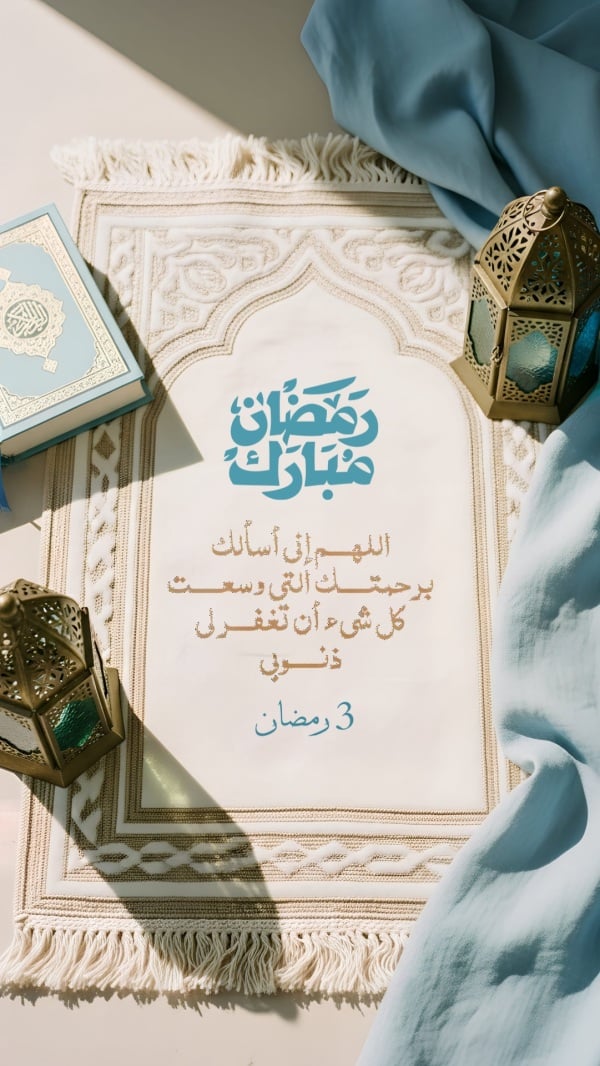 رَمَضَان
مُبَارَك
اللهم إني أسألك
برحمتك ألتي وسعت
كل شيء أن تغفر لي
ذنوبي
3 رمضان